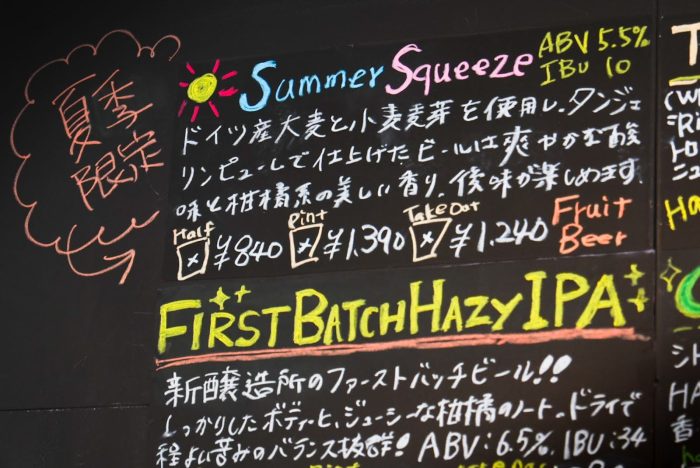 夏季
限定
Summer Squeeze ABV 5.5%
IBU 10
ドイツ産大麦と小麦麦芽を使用し、タンジェ
リンピューレで仕上げたビールは爽やかな酸
味と柑橘系の美しい香り、後味が楽しめます。
Half ¥840 Pint ¥1,390 Take Out ¥1,240 Fruit
Beer
FIRST BATCH HAZY IPA
新醸造所のファーストバッチビール!!
しっかりしたボディーと、ジューシーな柑橘のノート。ドライで
程よい苦みのバランス抜群! ABV:6.5% IBU:34